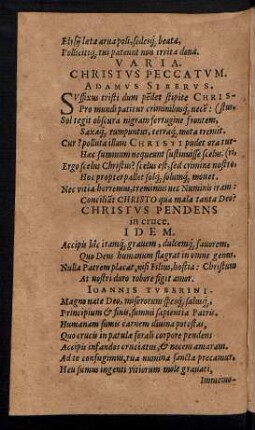 Etsiq́; lata arua poli, sedesq́;, beata,
Pollicitiq́;, tui pateunt non irrita dona.
VARIA.
CHRISTVS PECCATVM.
ADAMVS SIBERVS.
SVffixus tristi dum pẽdet stipite CHRIS-
Pro mundi patitur criminibusq́;, necẽ: (stus,
Sol tegit obscura nigram ferrugine frontem,
Saxaq́;, rumpuntur, terraq́;, mota tremit.
Cur? polluta illum CHRISTI pudet ora tur-
Hac summum nequeunt sustinuisse scelus. (ri,
Ergo scelus Christus? scelus est, sed crimine nostro:
Hoc propter pallet solq́;, solumq́;, mouet.
Nec vitia horremus, tremimus nec Numinis iram:
Conciliãt CHRISTO qua mala tanta Deo?
CHRISTVS PENDENS
in cruce.
IDEM.
Accipis hic iramq́;, grauem, dulcemq́;, fauorem,
Quo Deus humanum flagrat in omne genus.
Nulla Patrem placat, nisi Filius, hostia: Christum
At nostri duro robore figit amor.
IOANNIS TVBERINI.
Magno nate Deo, miserorum spesq́;, salusq́;,
Principium & finis, summi sapientia Patris.
Humanam sumis carnem diuina potestas,
Quo crucis in patula ferali corpore pendens
Accipis infandos cruciatus, & necem amaram.
Ad te confugimus, tua numina sancta precamur,
Heu sumus ingenti vitiorum mole grauati,
Immemo-